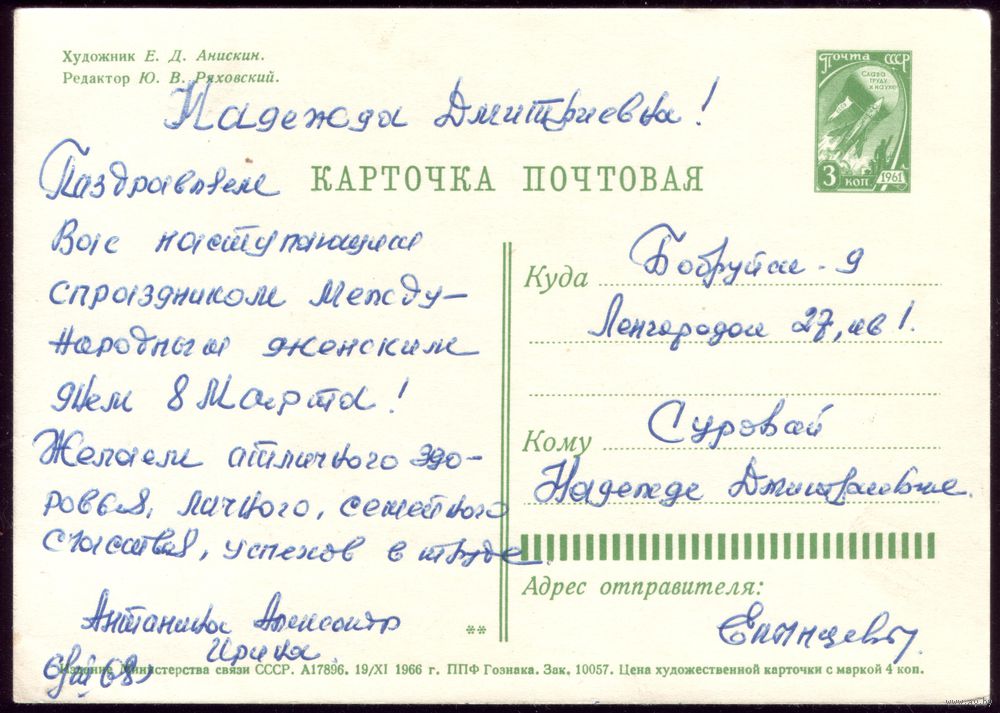 Художник Е. Д. Анискин.
Редактор Ю. В. Ряховский.
Почта СССР
Слава
труду
и науке
3 коп. 1961
КАРТОЧКА ПОЧТОВАЯ
Надежда Дмитриевна!
Паздравляем
Вас наступающим
спраздником Между-
народным женским
днем 8 Марта!
Желаем атличного здо-
ровья, личного, семейного
счастья, успехов в труде.
Антанина Александр
Ирина
Куда Бобруйск - 9
27, кв 1.
Кому Суровай
Надежде Дмитриевне.
Адрес отправителя:
**
Издание Министерства связи СССР. А17896. 19/XI 1966 г. ППФ Гознака. Зак. 10057. Цена художественной карточки с маркой 4 коп.
www.ay.by